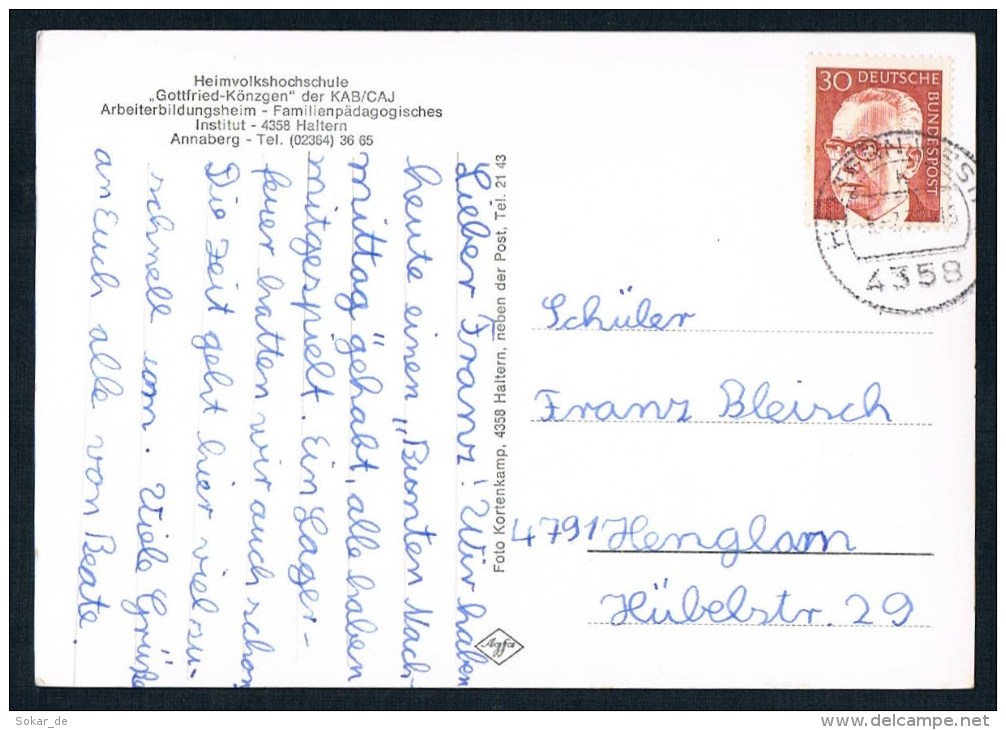 Heimvolkshochschule
„Gottfried-Könzgen" der KAB/CAJ
Arbeiterbildungsheim - Familienpädagogisches
Institut - 4358 Haltern
Annaberg - Tel. (02364) 36 65
Lieber Franz! Wir haben
heute einen „Bunten Nach-
mittag" gehabt, alle haben
mitgespielt. Ein Lager-
feuer hatten wir auch schon
Die Zeit geht hier viel zu
schnell um. Viele Grüße
an Euch alle von Beate.
Foto Kortenkamp, 4358 Haltern, neben der Post, Tel. 21 43
Agfa
30 DEUTSCHE
BUNDESPOST
4358
Schüler
Franz Bleisch
4791 Henglarn
Hübelstr. 29
Sokar_de
www.delcampe.net